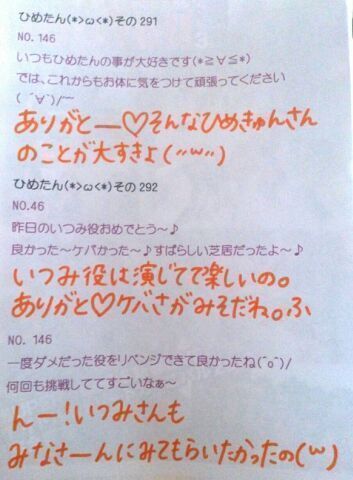 ひめたん(*>ω<*)その291
NO. 146
いつもひめたんの事が大好きです(*≧∀≦*)
では、これからもお体に気をつけて頑張ってください
( ´∀`)/~
ありがとー♡そんなひめきゅんさん
のことが大すきよ(〃ω〃)
ひめたん(*>ω<*)その292
NO.46
昨日のいつみ役おめでとう〜♪
良かった〜ケバかった〜♪すばらしい芝居だったよ〜♪
いつみ役は演じてて楽しいの。
ありがと♡ケバさがみそだね。ふ
NO. 146
一度ダメだった役をリベンジできて良かったね(^o^)/
何回も挑戦しててすごいなぁ〜
んー!いつみさんも
みなさーんにみてもらいたかったの(ω)